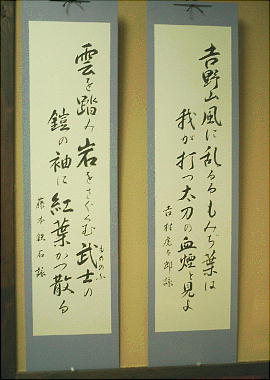 吉野山風に乱るるもみぢ葉は
我が打つ太刀の血煙と見よ
吉村虎太郎詠
雲を踏み岩をさくくむ武士の
もののふ
鎧の袖に紅葉かつ散る
藤本鉄石詠